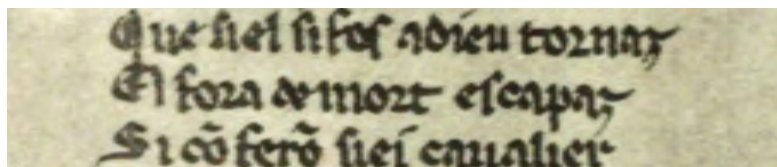 Que siel si fos adieu tornaz
El fora de mort escapaz
Si cō ferō siei caualier